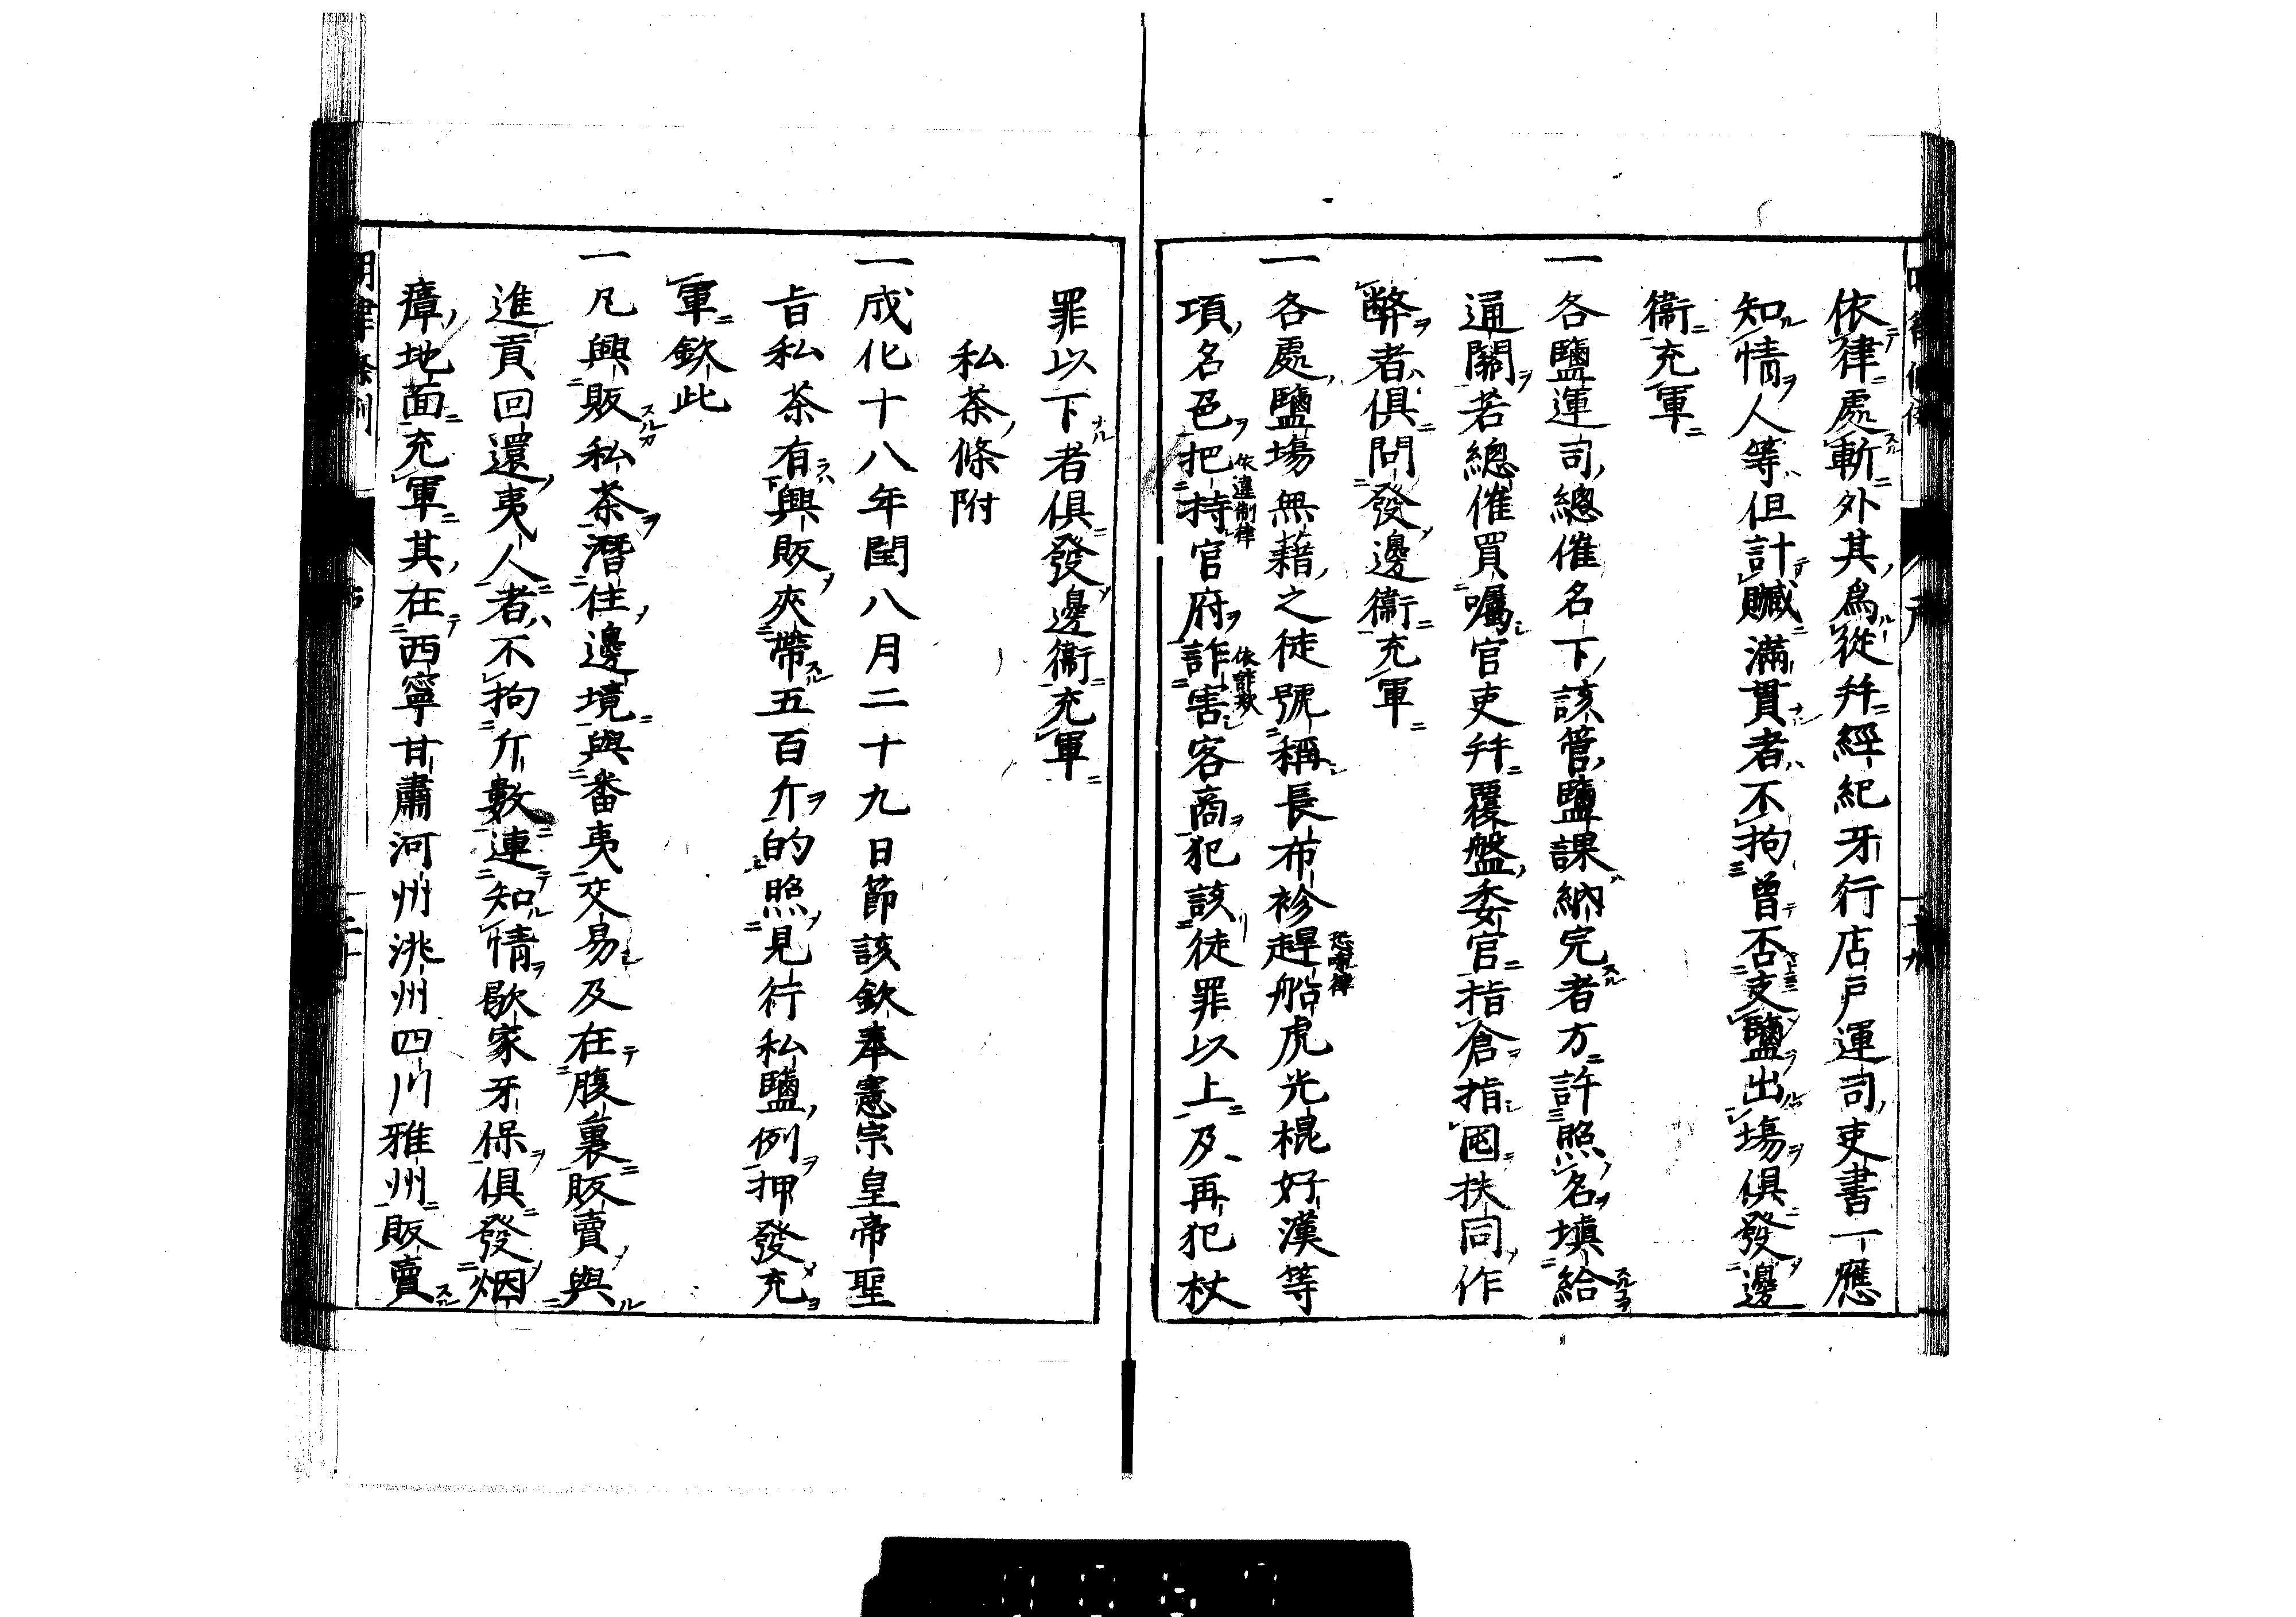 依律處斬外其爲從幷經紀牙行店戶運司吏書一應
知情人等但計贓滿貫者不拘曾否支鹽出場俱發邊
衞充軍
一各鹽運司總催名下該管鹽課納完者方許照名塡給
通關若總催買囑官吏幷覆盤委官指倉指囤扶同作
弊者俱問發邊衞充軍
一各處鹽塲無藉之徒號稱長布衫趕船虎光棍好漢等
恐嚇律
項名色把持官府詐害客商犯該徒罪以上及再犯杖
依違制律
依詐欺
罪以下者俱發邊衞充軍
私茶條附
一成化十八年閏八月二十九日節該欽奉憲宗皇帝聖
旨私茶有興販夾帶五百斤的照見行私鹽例押發充
軍欽此
一凡興販私茶潛住邊境與番夷交易及在腹裏販賣與
進貢回還夷人者不拘斤數連知情歇家牙保俱發烟
瘴地面充軍其在西寧甘肅河州洮州四川雅州販賣